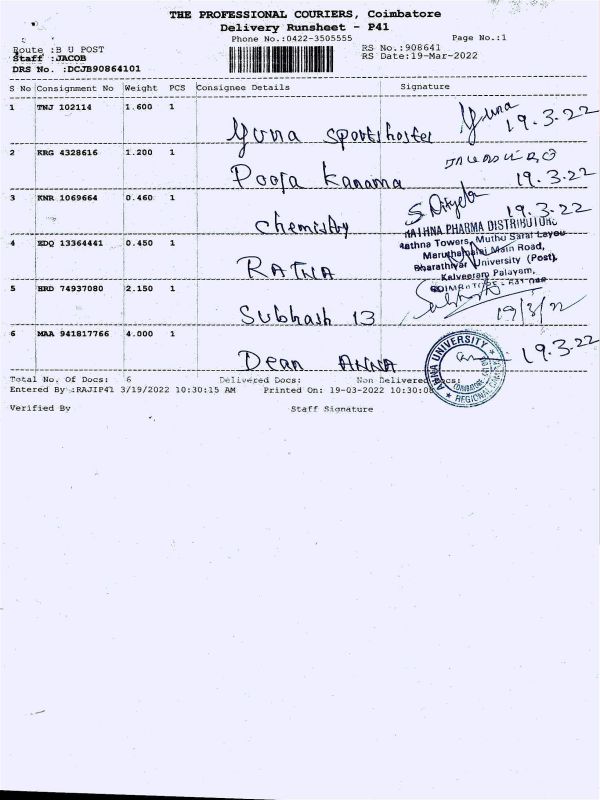 THE PROFESSIONAL COURIERS, Coimbatore
Delivery Runsheet - P41
Phone No.:0422-3505555 Page No.:1
Route :B U POST RS No.:908641
Staff :JACOB RS Date:19-Mar-2022
DRS No. :DCJB90864101
S No Consignment No Weight PCS Consignee Details Signature
1 TNJ 102114 1.600 1 Yuva sports hostel Yuva 19.3.22
2 KRG 4328616 1.200 1 Pooja Kanama 19.3.22
3 KNR 1069664 0.460 1 chemistry S. 19.3.22
RATHNA PHARMA DISTRIBUTORS
Rathna Towers, Muthu Sarai Layou
Maruthamalai Main Road,
Bharathiyar University (Post),
Kalveeram Palayam,
COIMBATORE - 641 046
4 EDQ 13364441 0.450 1 RATNA
5 HRD 74937080 2.150 1 Subhash 13 19/3/22
6 MAA 941817766 4.000 1 Dean ANNA 19.3.22
ANNA UNIVERSITY
COIMBATORE
REGIONAL CAMPUS
Total No. Of Docs: 6 Delivered Docs: Non Delivered Docs:
Entered By :RAJIP41 3/19/2022 10:30:15 AM Printed On: 19-03-2022 10:30:0
Verified By Staff Signature